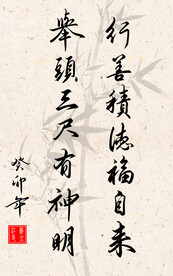 行善積德福自来
舉頭三尺有神明
癸卯年